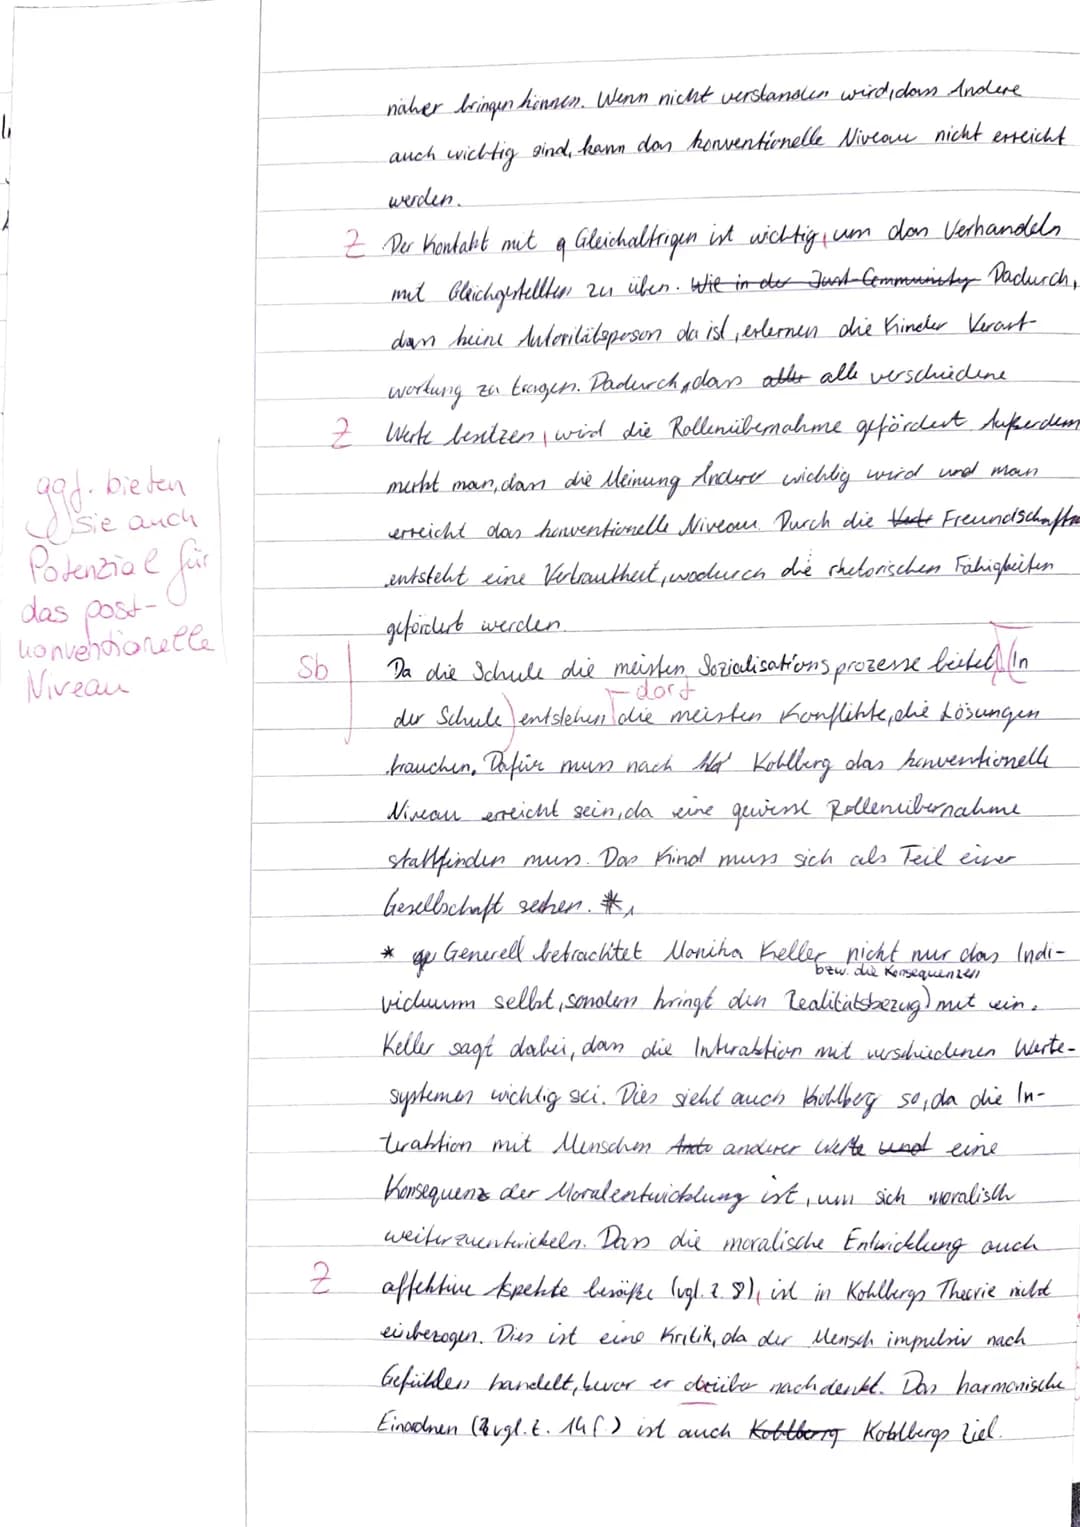 näher bringen können. Wenn nicht verstanden wird, dass Andere
auch wichtig sind, kann das konventionelle Niveau nicht erreicht
werden.
Z Der Kontakt mit g Gleichaltrigen ist wichtig, um das Verhandeln
mit Gleichgestellten zu üben. Wie in der Just-Community Dadurch,
dass keine Autoritätsperson da ist, erlernen die Kinder Verant-
wortung zu tragen. Dadurch, dass alle verschiedene
Z Werte besitzen, wird die Rollenübernahme gefördert Außerdem
merkt man, dass die Meinung Anderer wichtig wird und man
erreicht das konventionelle Niveau. Durch die Freundschaften
entsteht eine Vertrautheit, wodurch die rhetorischen Fähigkeiten
gefördert werden.
ggf. bieten
sie auch
Potenzial für
das post-
konventionelle
Niveau
Sb Da die Schule die meisten Sozialisationsprozesse leitet (In
dort
der Schule) entstehen die meisten Konflikte, die Lösungen
brauchen. Dafür muss nach Kohlberg das konventionelle
Niveau erreicht sein, da eine gewisse Rollenübernahme
stattfinden muss. Das Kind muss sich als Teil einer
Gesellschaft sehen. *1
* ge Generell betrachtet Monika Keller nicht nur das Indi-
bzw. die Konsequenzen
viduum selbst, sondern bringt den Realitätsbezug) mit ein.
Keller sagt dabei, dass die Interaktion mit verschiedenen Werte-
systemen wichtig sei. Dies sieht auch Kohlberg so, da die In-
teraktion mit Menschen anderer Werte und eine
Konsequenz der Moralentwicklung ist, um sich moralisch
weiterzuentwickeln. Dass die moralische Entwicklung auch
Z affektive Aspekte besäße (vgl. Z. 8), ist in Kohlbergs Theorie nicht
einbezogen. Dies ist eine Kritik, da der Mensch impulsiv nach
Gefühlen handelt, bevor er drüber nachdenkt. Das harmonische
Einordnen (vgl. Z. 14 f.) ist auch Kohlberg Kohlbergs Ziel.